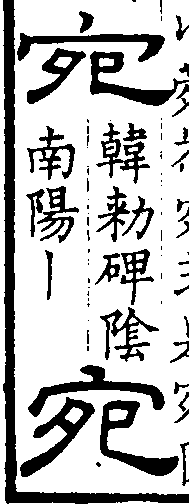 宛
韓勑碑陰
南陽丨
宛